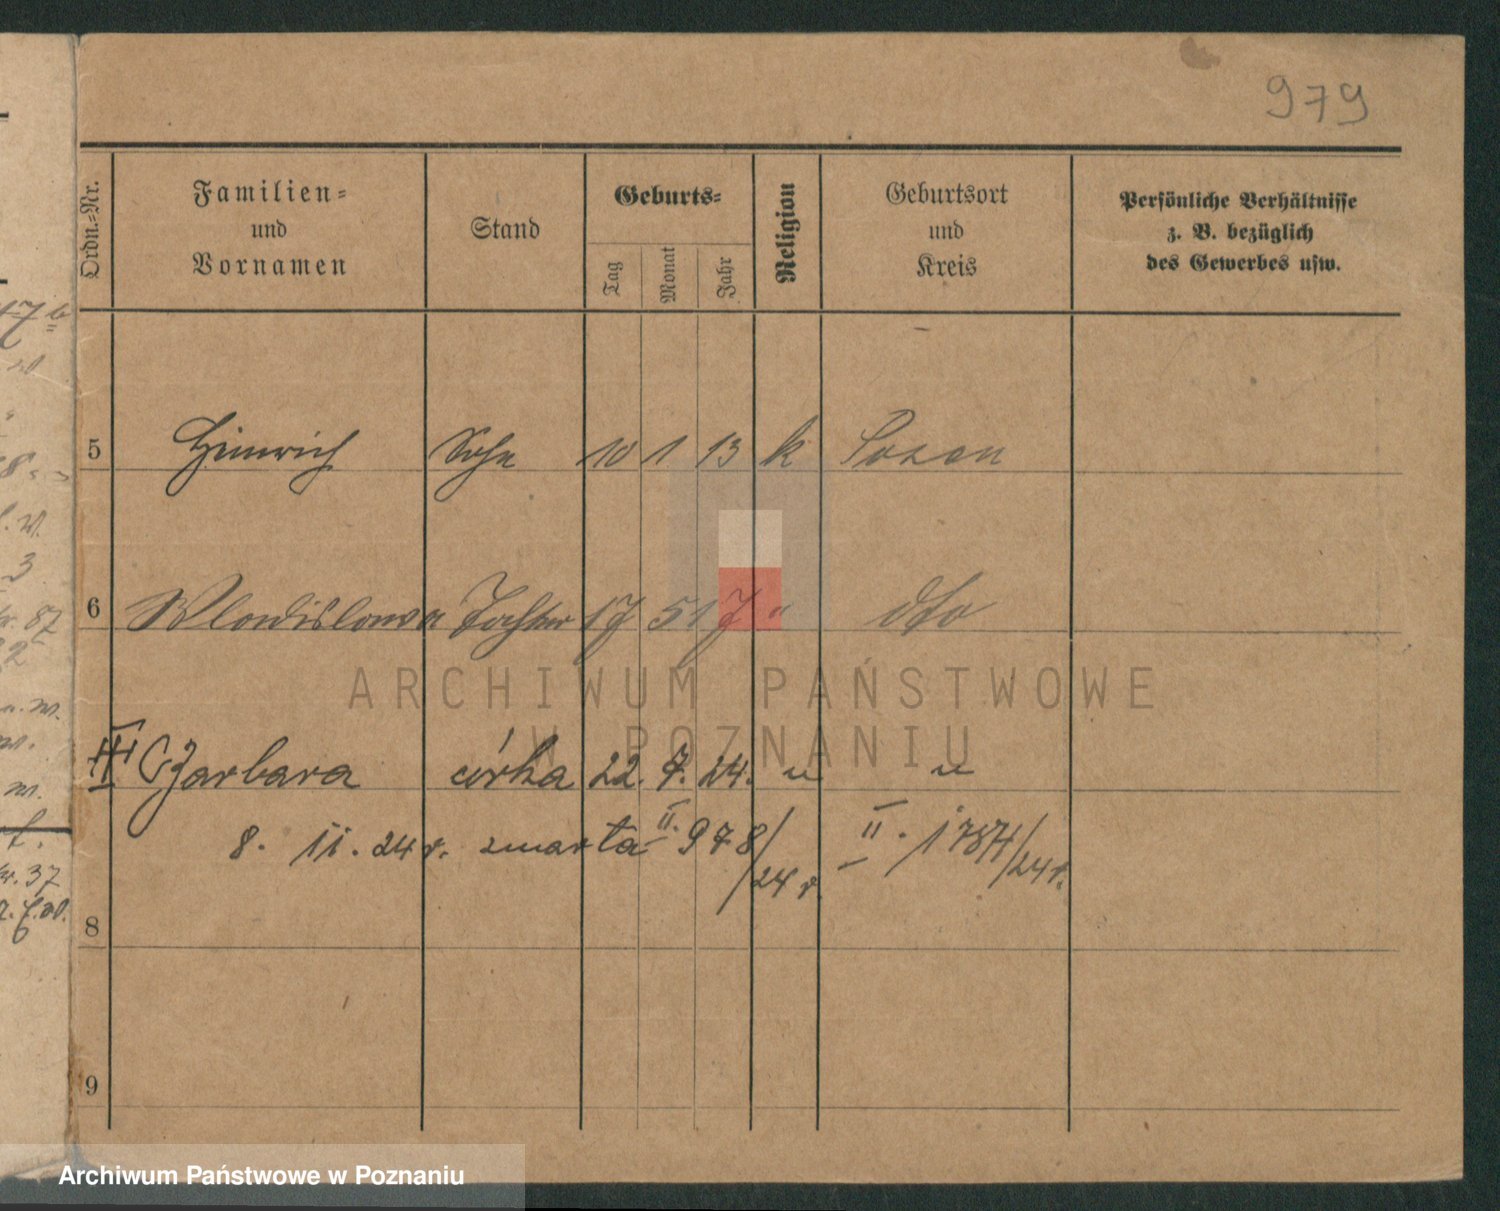 979
Ordn.=Nr.
Familien=
und
Vornamen
Stand
Geburts=
Tag
Monat
Jahr
Religion
Geburtsort
und
Kreis
Persönliche Verhältnisse
z. B. bezüglich
des Gewerbes usw.
5 Heinrich Sohn 10 1 13 k Posen
6 Wladislawa Tochter 17 5 17 " dto
III Barbara córka 22. 7. 24. " "
8. 11. 24 r. zmarła II. 978/24 r. II. 1787/24 r.
8
9
ARCHIWUM PAŃSTWOWE
W POZNANIU
Archiwum Państwowe w Poznaniu